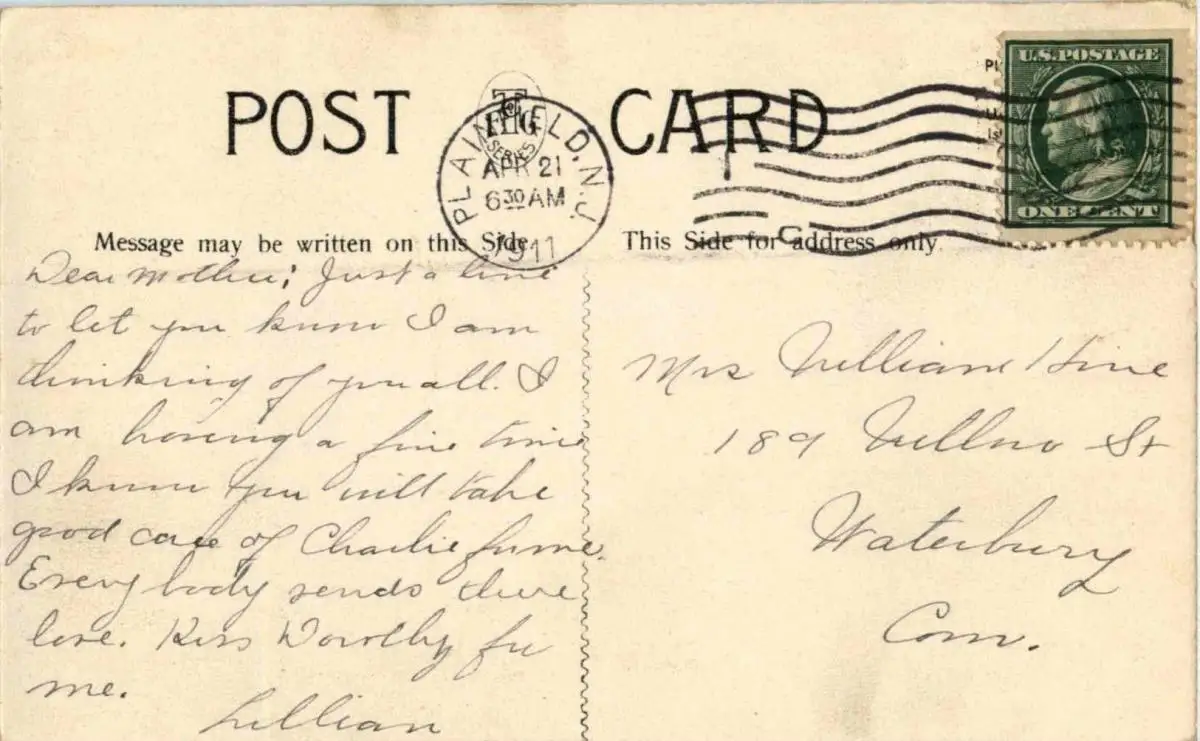 POST CARD
THG
SERIES
PLAINFIELD, N.J.
APR 21
6 30 AM
1911
U.S. POSTAGE
ONE CENT
Message may be written on this Side
This Side for address only
Dear Mother; Just a line
to let you know I am
thinking of you all. I
am having a fine time
I know you will take
good care of Charlie for me.
Every body sends there
love. Kiss Dorothy for
me.
Lillian
Mrs William Hine
189 St
Waterbury
Conn.